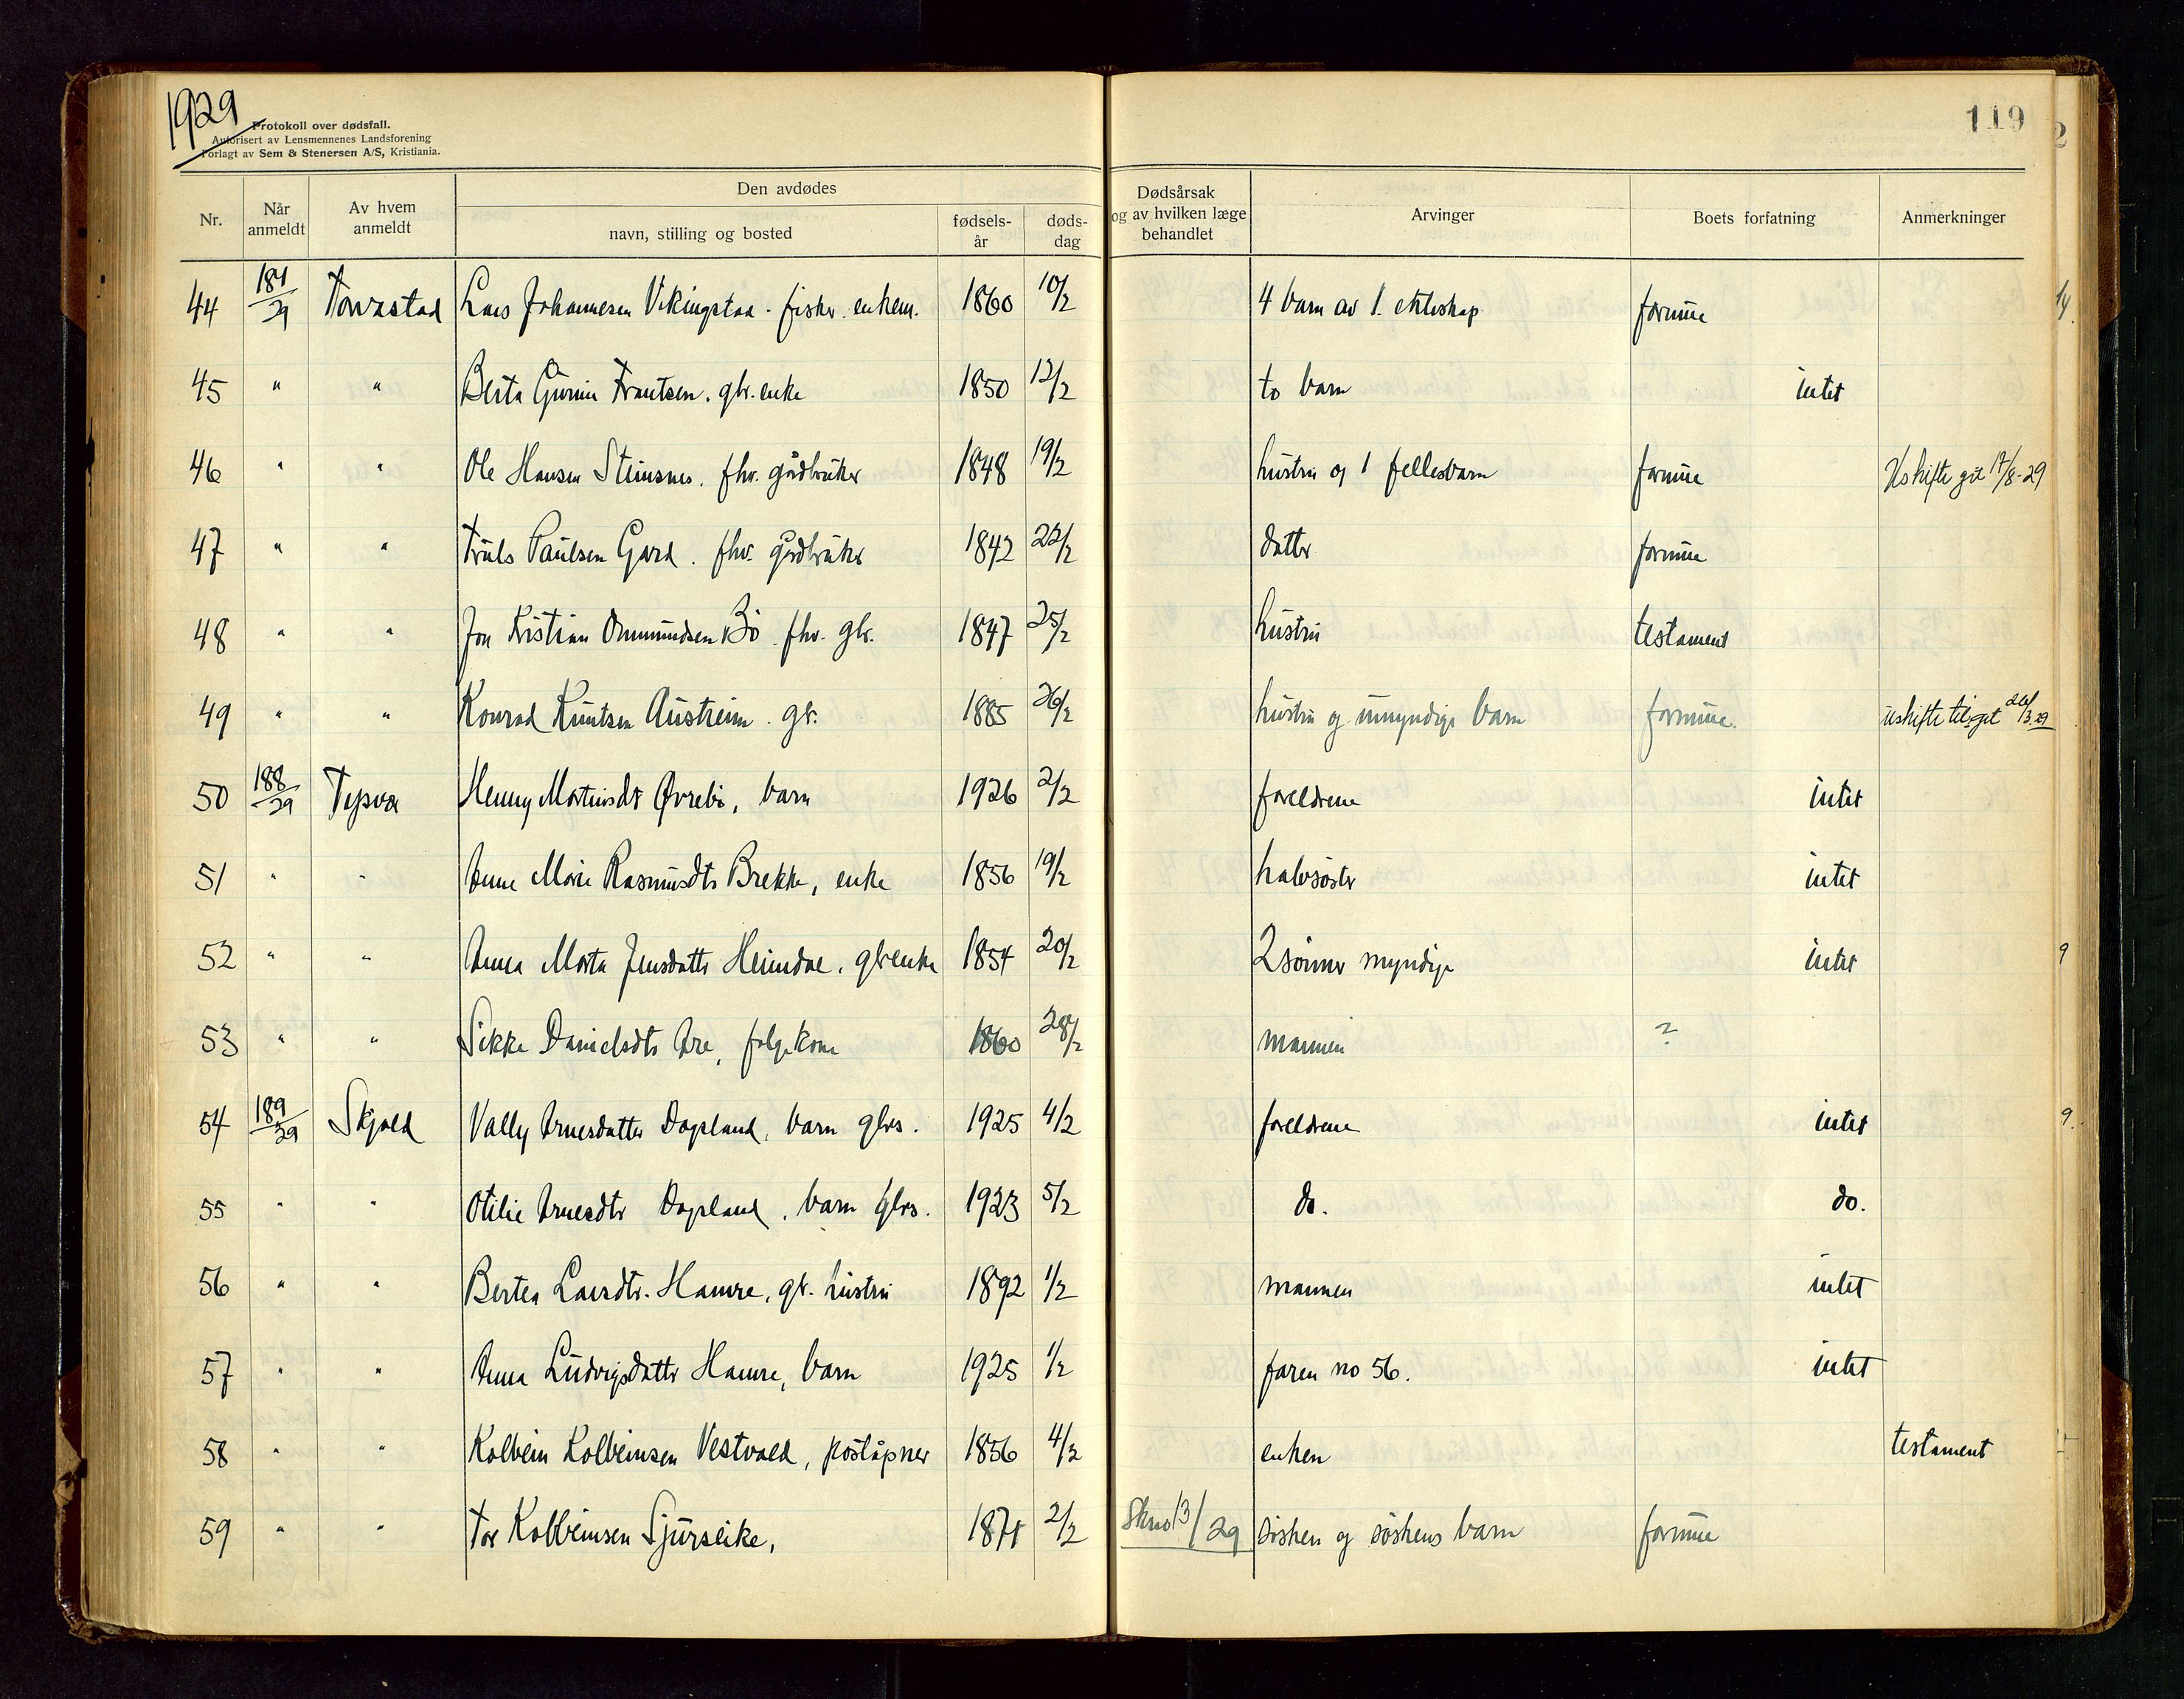 1929
Protokoll over dødsfall.
Autorisert av Lensmennenes Landsforening
Forlagt av Sem & Stenersen A/S, Kristiania.
119
Nr. Når anmeldt Av hvem anmeldt Den avdødes navn, stilling og bosted fødsels-år døds-dag Dødsårsak og av hvilken læge behandlet Arvinger Boets forfatning Anmerkninger
44 181/29 Torvastad Lars Johannesen Vikingstad. fisker. enkem. 1860 10/2 4 barn av 1. ekteskap formue
45 " " Berta Gurine Frantsen. gbr. enke 1850 12/2 to barn intet
46 " " Ole Hansen Steinsnes. fhv. gårdbruker 1848 19/2 hustru og 1 fellesbarn formue Uskifte git 17/8-29
47 " " Truls Paulsen Gard. fhv. gårdbruker 1842 22/2 datter formue
48 " " Jon Kristian Ommundsen Bö. fhv. gbr. 1847 25/2 hustru testament
49 " " Konrad Knutsen Austreim. gbr. 1885 26/2 hustru og umyndige barn formue. uskifte til.git 26/3.29
50 188/29 Tysvær Henny Martinsdtr Øvrebö, barn 1926 2/2 foreldrene intet
51 " " Anne Marie Rasmusdtr Brekke, enke 1856 19/2 halvsöster intet
52 " " Anna Marta Jensdatter Heimdal. gbrenke 1854 20/2 2 sönner myndige intet
53 " " Sikke Danielsdtr Are, folgekone 1860 28/2 mannen ?
54 189/29 Skjold Vally Arnesdatter Dagsland, barn gbrs. 1925 4/2 foreldrene intet
55 " " Otilie Arnesdtr Dagsland. barn gbrs. 1923 5/2 do. do.
56 " " Bertea Larsdtr. Hamre, gbr. hustru 1892 1/2 mannen intet
57 " " Anna Ludvigsdatter Hamre, barn 1925 1/2 faren no 56. intet
58 " " Kolbein Kolbeinsen Vestvold, poståpner 1856 4/2 enken testament
59 " " Tor Kolbeinsen Sjurseike, 1871 2/2 13/29 söshen og söskens barn formue